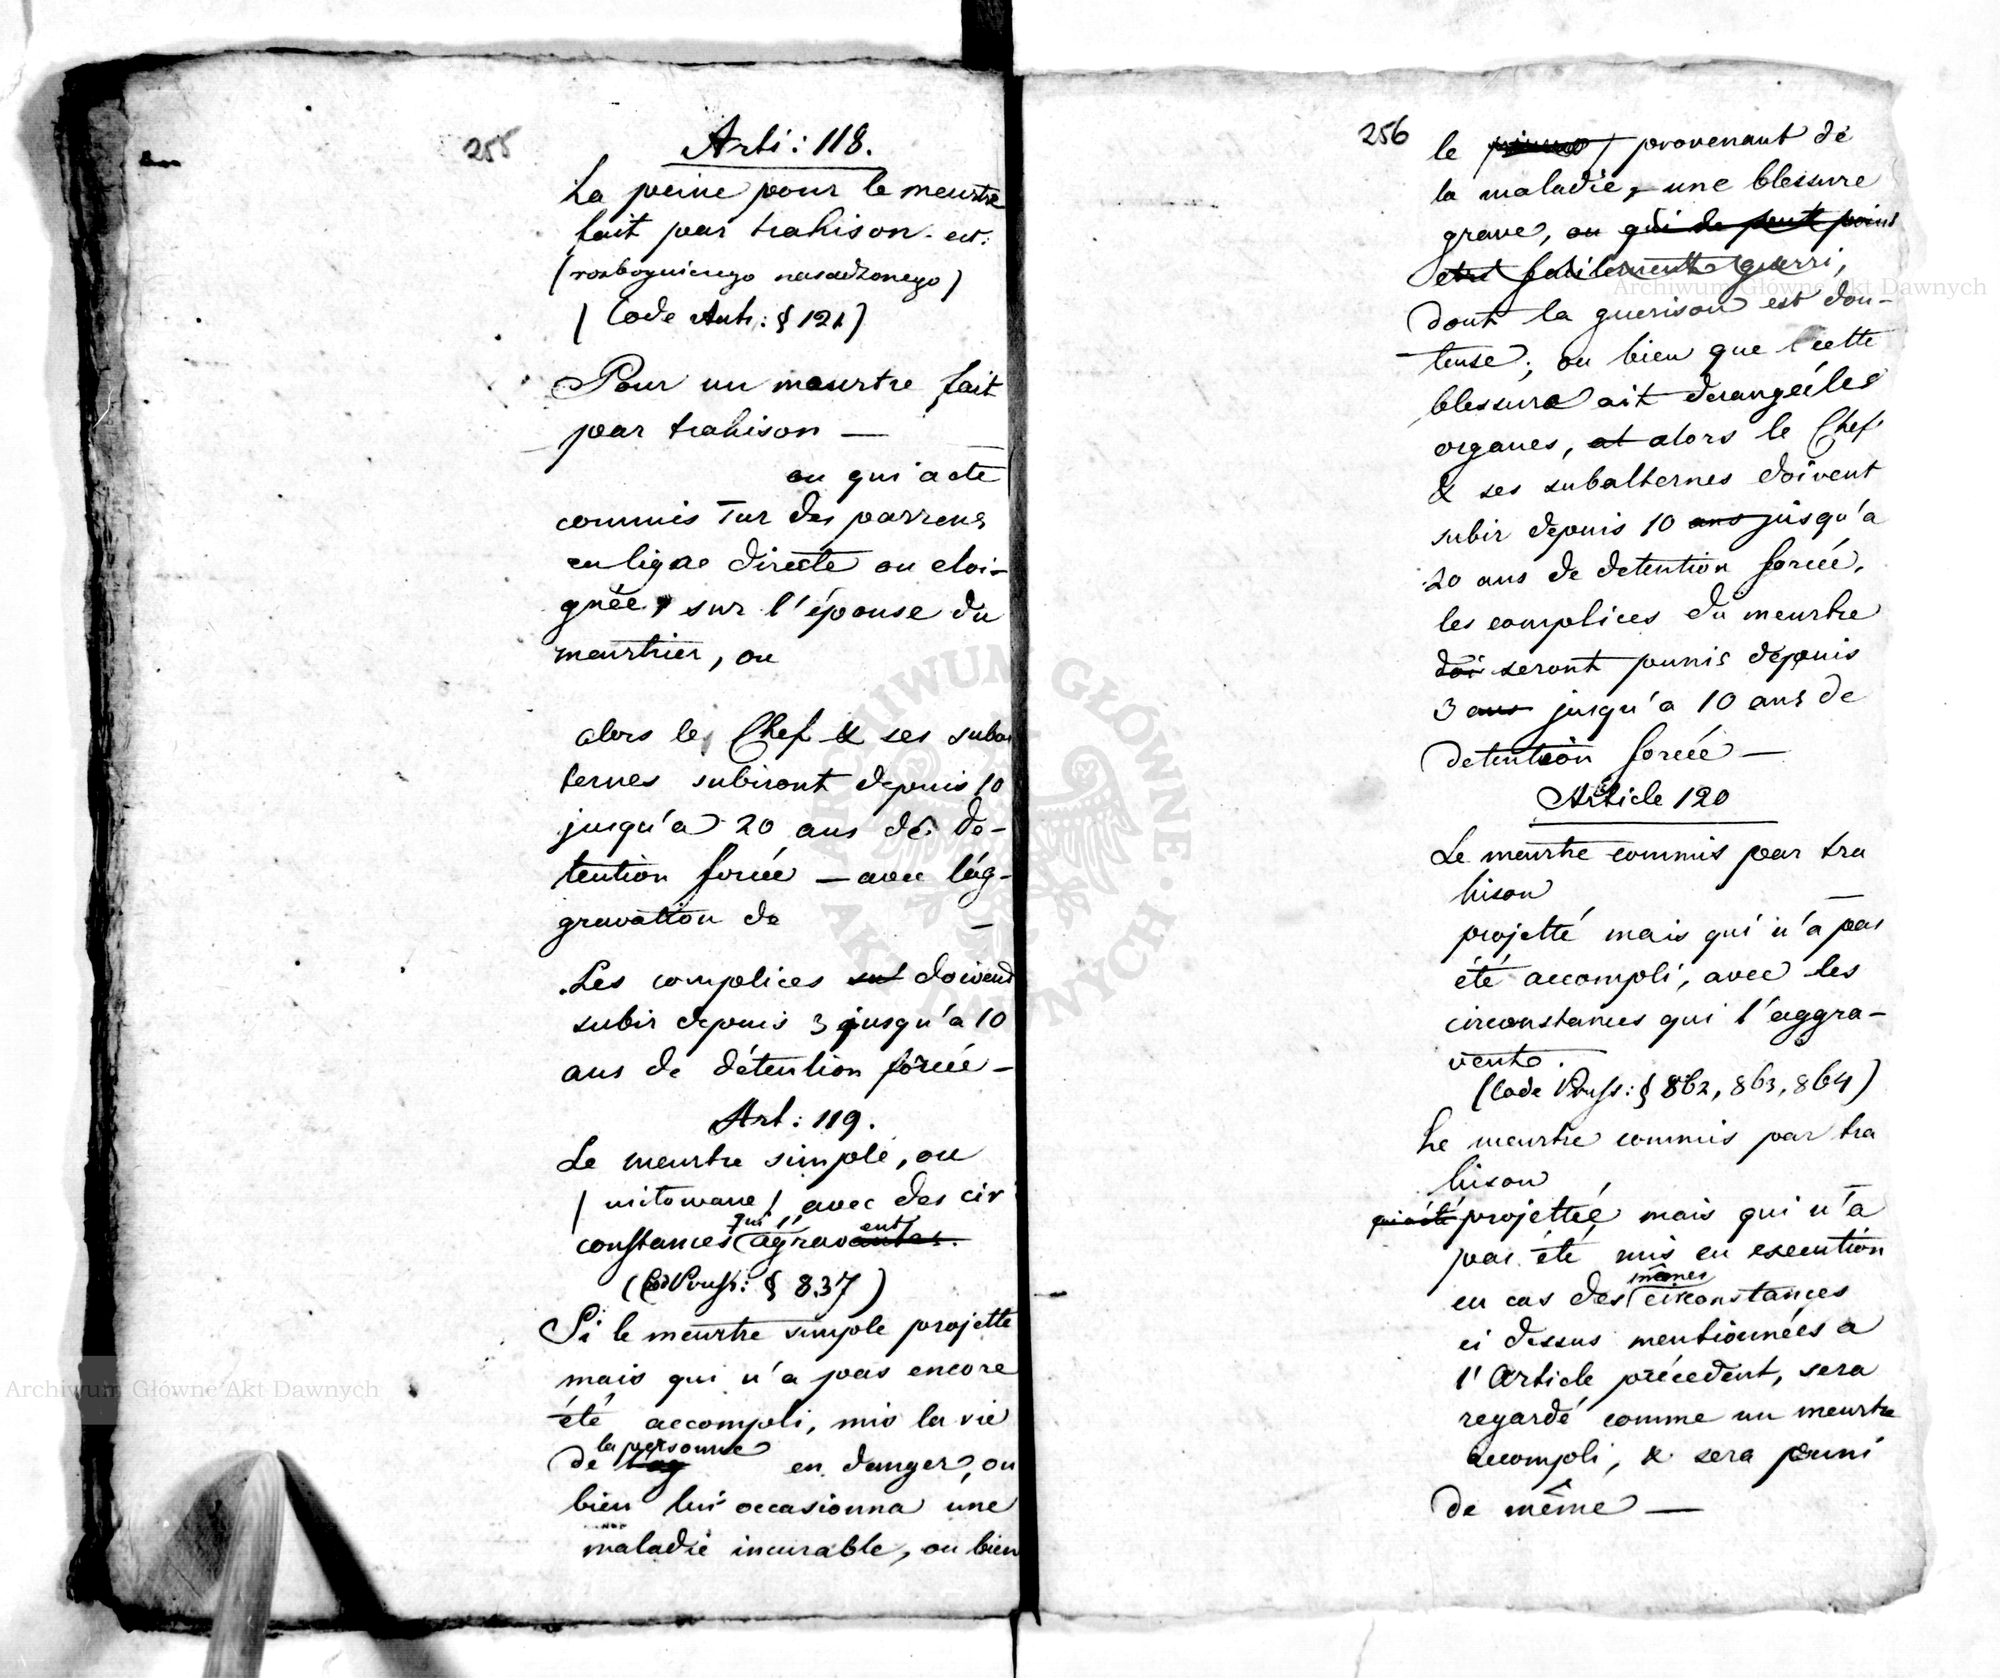 255
Arti: 118.
La peine pour le meurtre
fait par trahison est:
(rozboyniczego nasadzonego)
(Code Autr: § 121)
Pour un meurtre fait
par trahison —
ou qui a été
commis sur des parrens
en ligne directe ou eloi-
gnée, sur l'épouse du
meurtrier, ou
alors le Chef & ses subal
ternes subiront depuis 10
jusqu'a 20 ans de de-
tention forcée — avec l'ag-
gravation de —
Les complices doivent
subir depuis 3 jusqu'a 10
ans de détention forcée —
Art: 119.
Le meurtre simple, ou
( mitowane ) avec des cir
constances qui l'agravent
(Cod Pruss: § 837)
Si le meurtre simple projetté
mais qui n'a pas encore
été accompli, mis la vie
de la personne en danger, ou
bien lui occasionna une
maladie incurable, ou bien
256
le provenant de
la maladie, une blessure
grave, ou qui de peut point
etre facilement guerri,
dont la guerison est dou-
teuse; ou bien que cette
blessure ait derangée les
organes, et alors le Chef
& ses subalternes doivent
subir depuis 10 ans jusqu'a
20 ans de detention forcée,
les complices du meurtre
doi seront punis depuis
3 ans jusqu'a 10 ans de
detention forcée —
Article 120
Le meurtre commis par tra
hison —
projetté mais qui n'a pas
été accompli, avec les
circonstances qui l'aggra-
vente.
(Code Pruss: § 862, 863, 864)
Le meurtre commis par tra
hison —
qui a été projettée mais qui n'a
pas été mis en execution
en cas des mêmes circonstances
ci dessus mentionnées a
l'Article précedent, sera
regardé comme un meurtre
accompli, & sera puni
de même —
Archiwum Główne Akt Dawnych
Archiwum Główne Akt Dawnych
ARCHIWUM GŁÓWNE AKT DAWNYCH